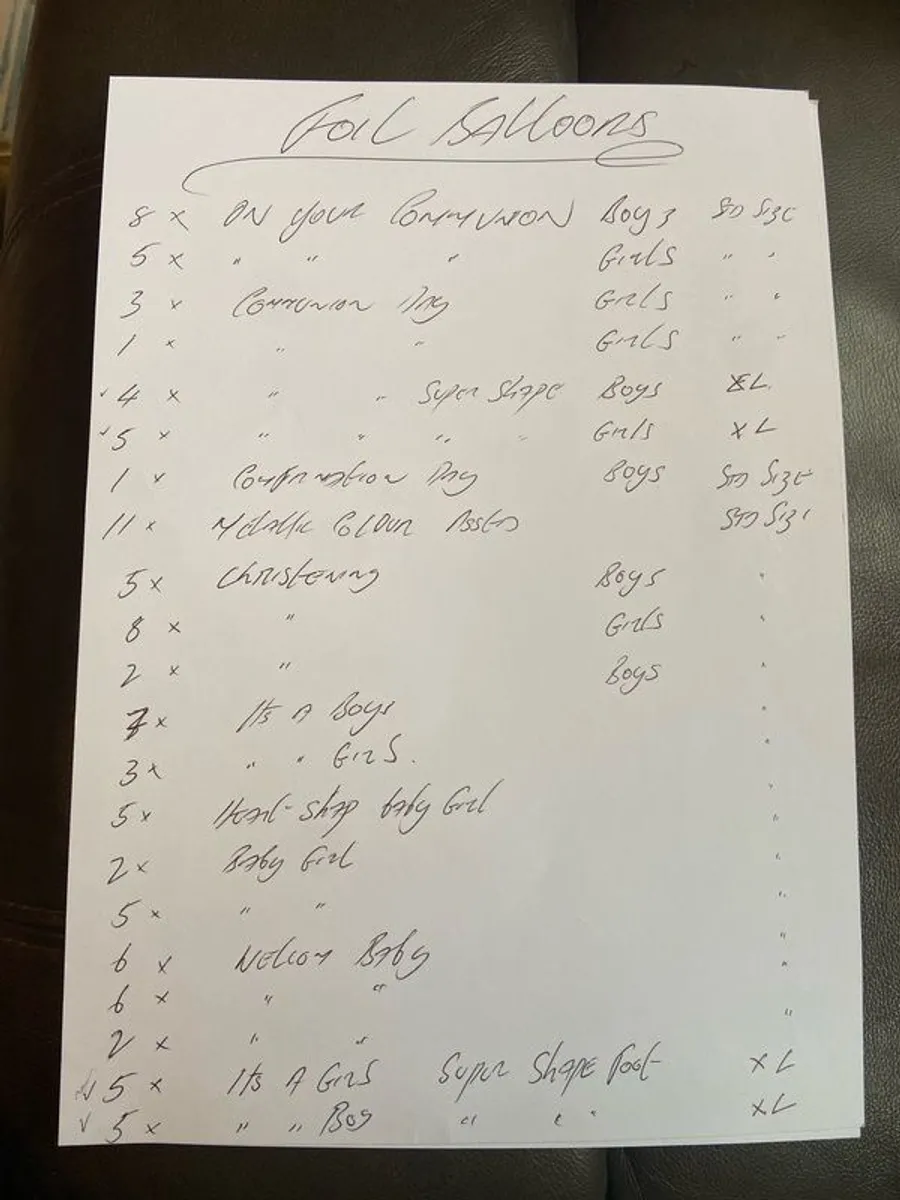 Foil Balloons
8 x ON YOUR COMMUNION Boys STD Size
5 x " " " Girls " "
3 x Communion Day Girls " "
1 x " " Girls " "
✓ 4 x " " Super Shape Boys XL
✓ 5 x " " " " Girls XL
1 x Confirmation Day Boys STD Size
11 x Metallic Colour Asstd STD Size
5 x Christening Boys "
8 x " Girls "
2 x " Boys "
7 x Its A Boys "
3 x " " Girls. "
5 x Heart-Shap baby Girl "
2 x Baby Girl "
5 x " " "
6 x Welcom Baby "
6 x " " "
2 x " " "
✓ 5 x Its A Girls Super Shape Foot XL
✓ 5 x " " Boy " " " XL